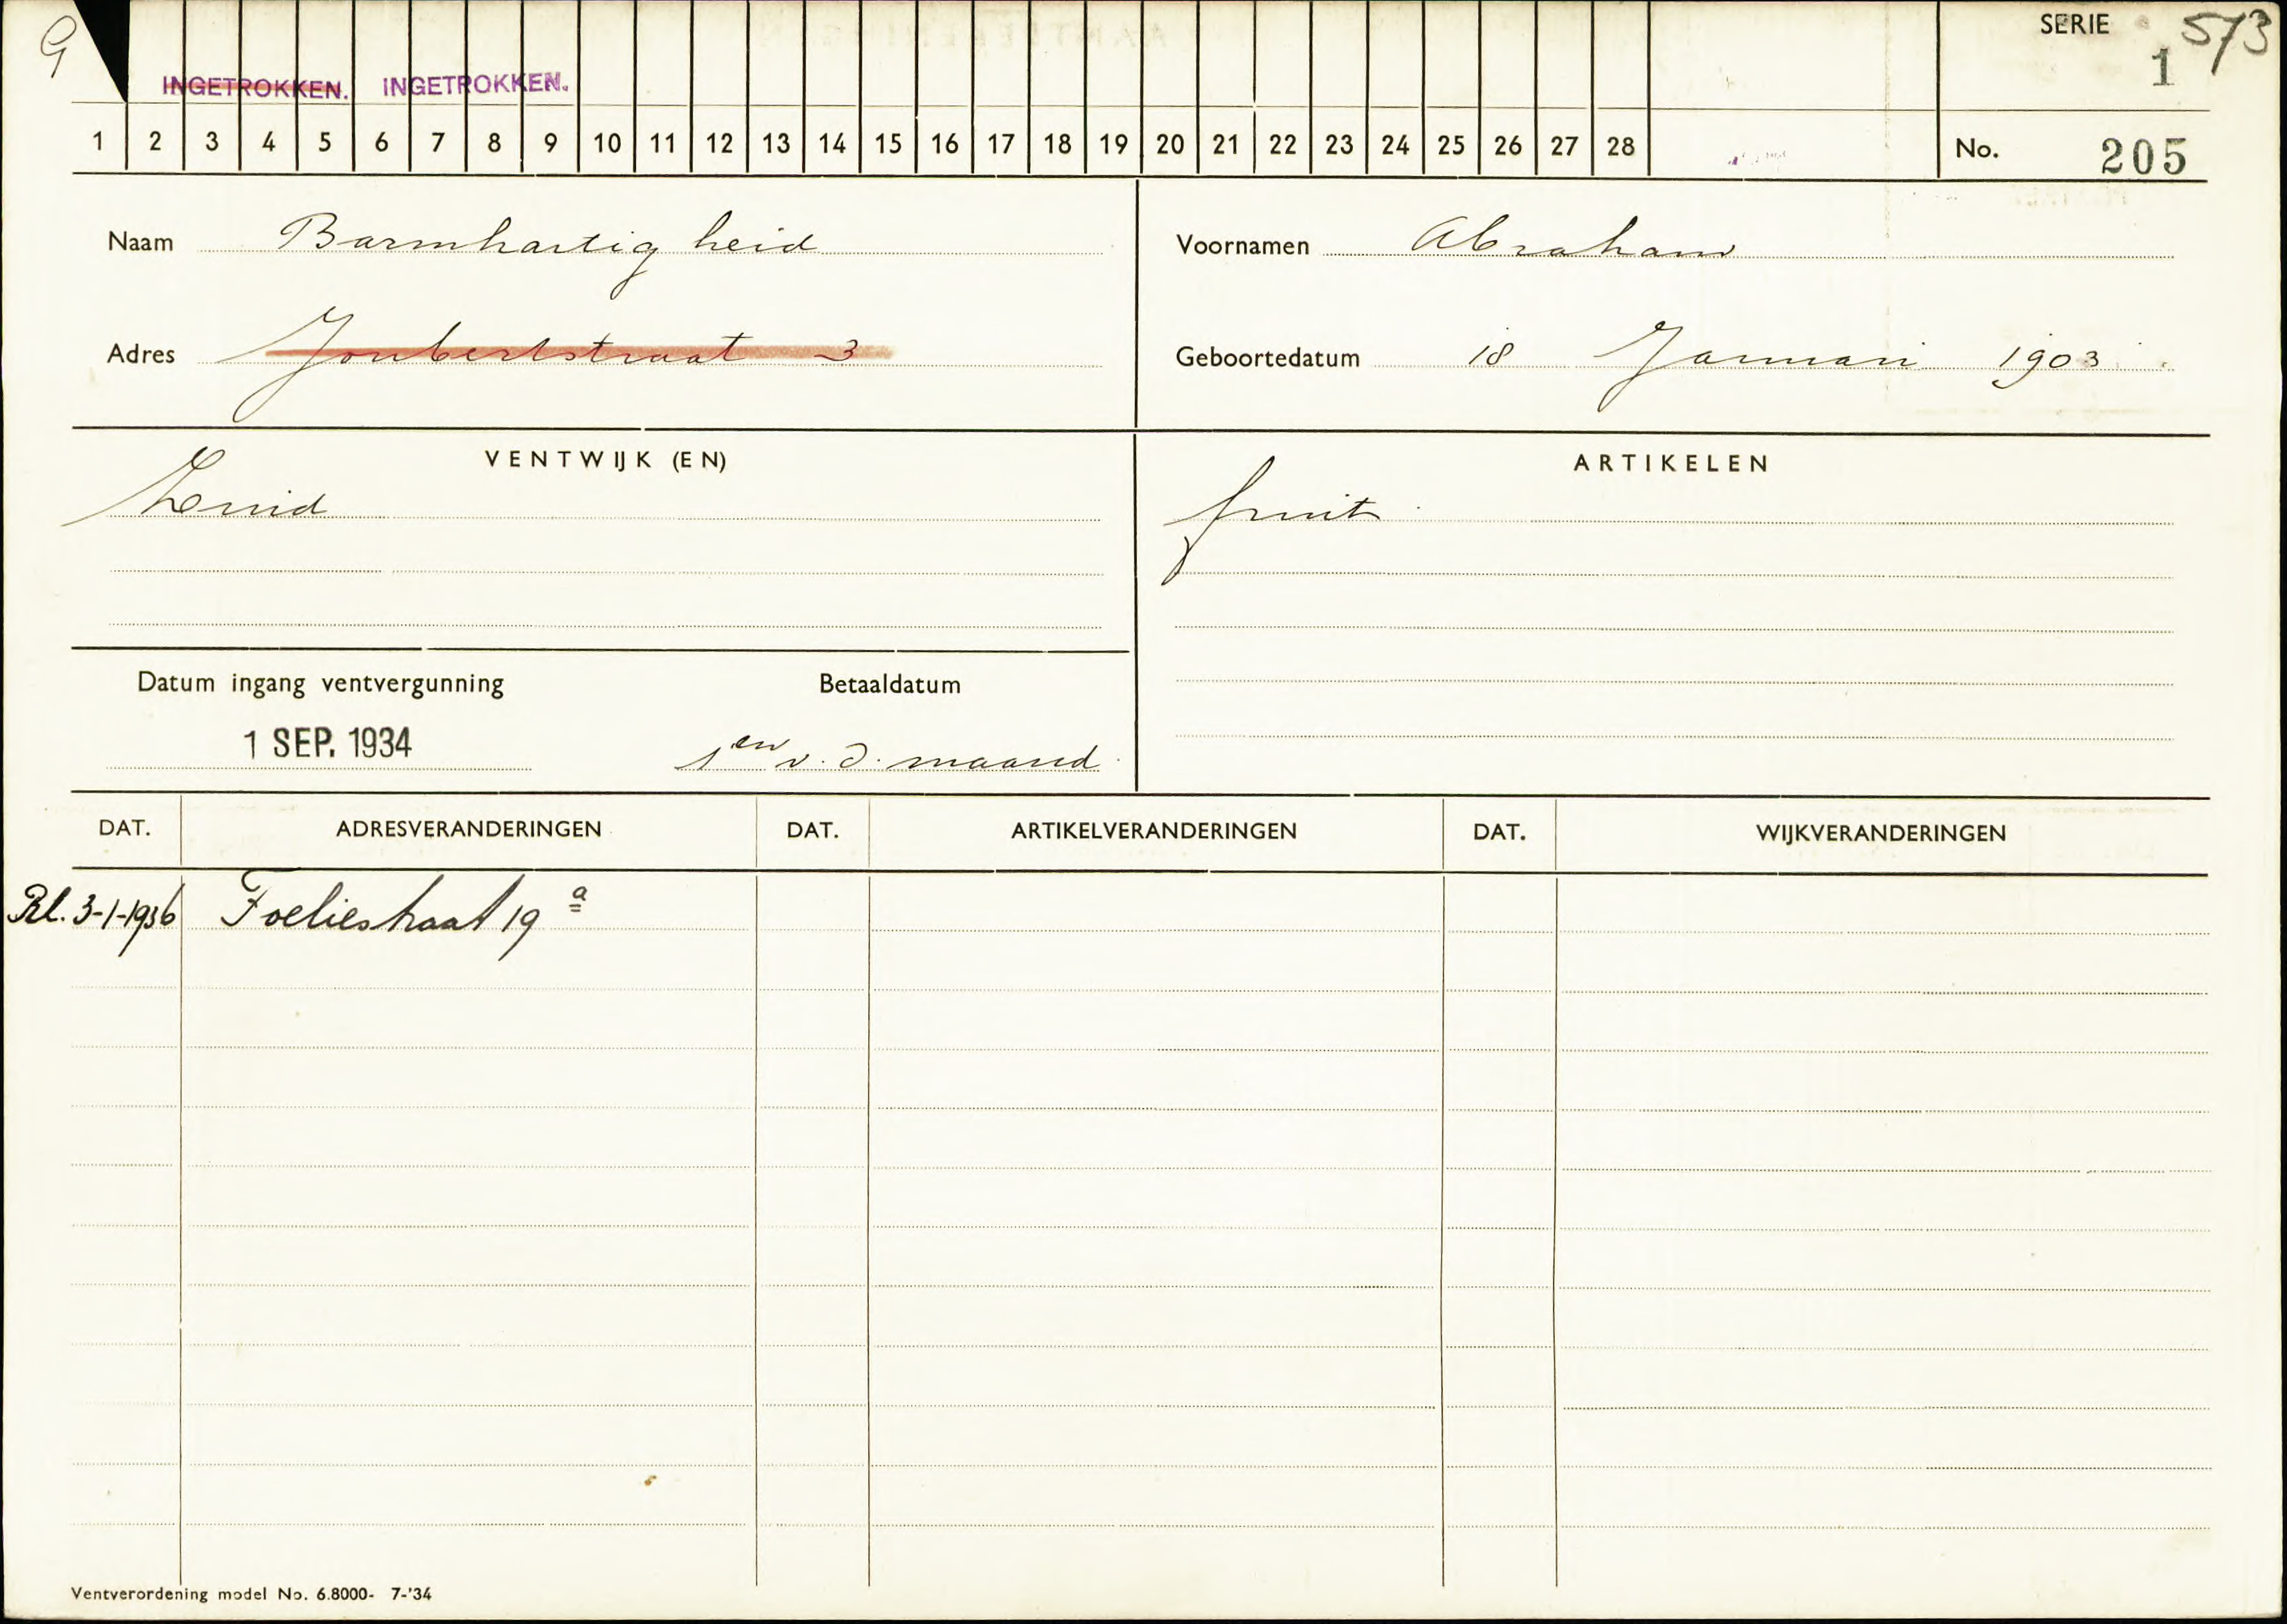 G SERIE 573
INGETROKKEN. INGETROKKEN. 1
1 2 3 4 5 6 7 8 9 10 11 12 13 14 15 16 17 18 19 20 21 22 23 24 25 26 27 28 No. 205
Naam Barmhartigheid Voornamen Abraham
Adres Joubertstraat 3 Geboortedatum 18 Januari 1903
VENTWIJK (EN) ARTIKELEN
Zuid fruit
Datum ingang ventvergunning Betaaldatum
1 SEP. 1934 1en v. d. maand
DAT. ADRESVERANDERINGEN DAT. ARTIKELVERANDERINGEN DAT. WIJKVERANDERINGEN
Rl. 3-1-1936 Foeliestraat 19 a
Ventverordening model No. 6.8000- 7-'34